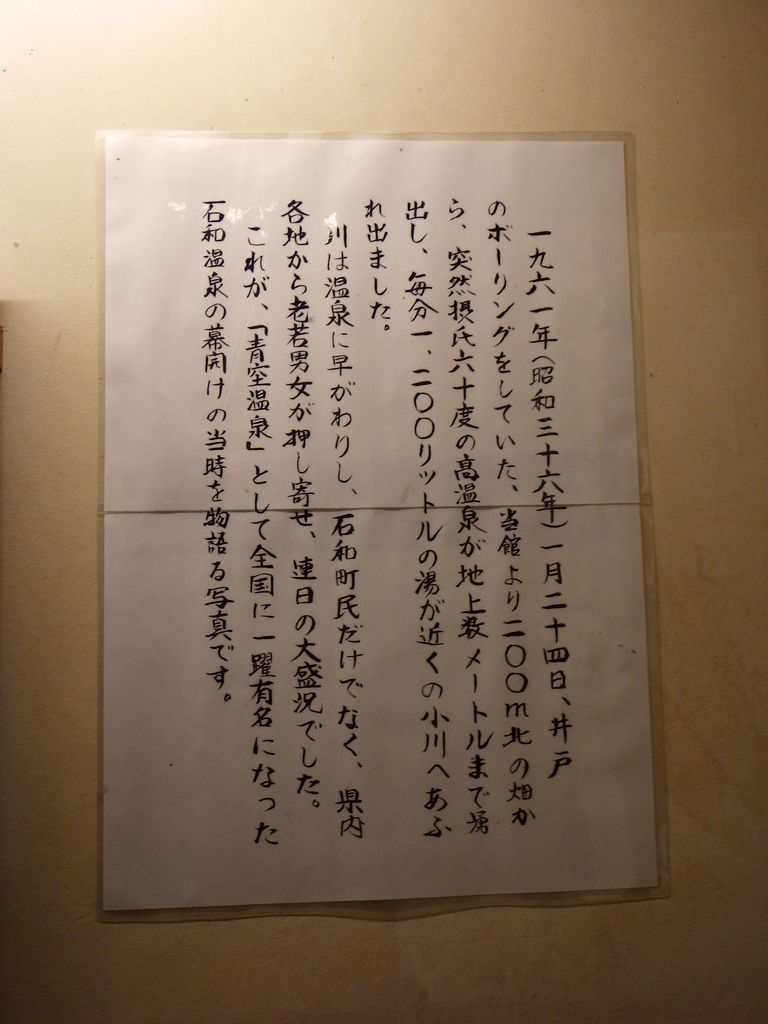 一九六一年(昭和三十六年)一月二十四日、井戸
のボーリングをしていた、当館より二〇〇m北の畑か
ら、突然摂氏六十度の高温泉が地上数メートルまで湧
出し、毎分一、二〇〇リットルの湯が近くの小川へあふ
れ出ました。
川は温泉に早がわりし、石和町民だけでなく、県内
各地から老若男女が押し寄せ、連日の大盛況でした。
これが、「青空温泉」として全国に一躍有名になった
石和温泉の幕開けの当時を物語る写真です。